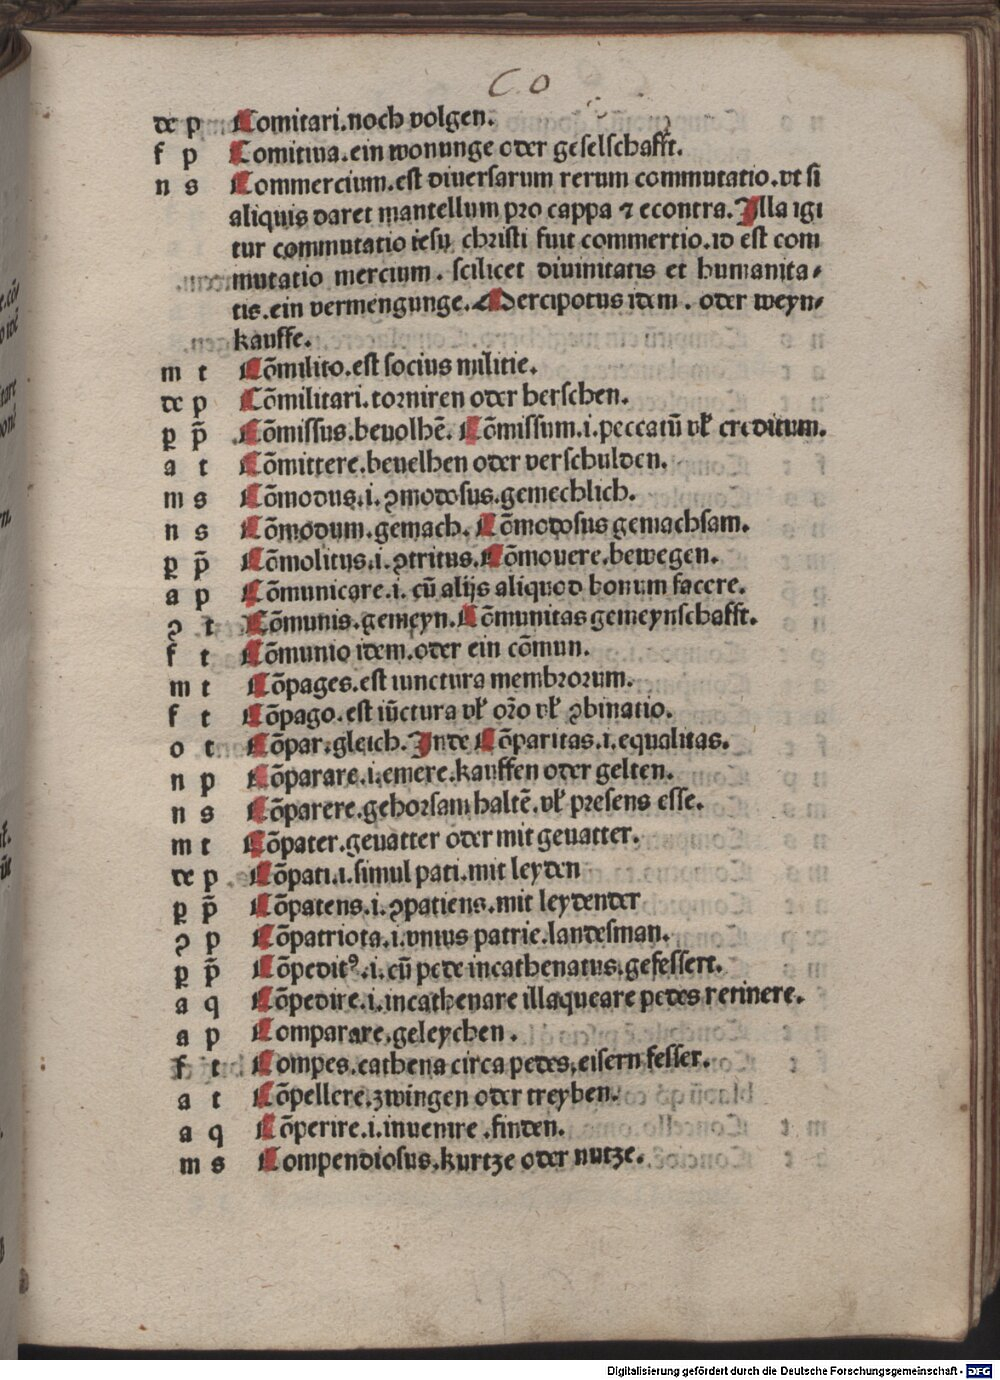 C O
de p Comitari.noch volgen.
f p Comitiua.ein wonunge oder geselschafft.
n s Commercium.est diuersarum rerum commutatio.vt si
aliquis daret mantellum pro cappa ⁊ econtra.Illa igi
tur commutatio iesu christi fuit commertio.id est com
mutatio mercium. scilicet diuinitatis et humanita⸗
tis.ein vermengunge.Mercipotus idem. oder weyn⸗
kauffe.
m t Cõmilito.est socius militie.
de p Cõmilitari.torniren oder herschen.
p p̃ Cõmissus.beuolhẽ. Cõmissum.i.peccatũ vł creditum.
a t Cõmittere.beuelhen oder verschulden.
m s Cõmodus.i.ꝯmodosus.gemechlich.
n s Cõmodum.gemach. Cõmodosus gemachsam.
p p̃ Cõmolitus.i.ꝯtritus.Cõmouere.bewegen.
a p Cõmunicare.i. cũ alijs aliquod bonum facere.
ꝯ t Cõmunis.gemeyn.Cõmunitas gemeynschafft.
f t Cõmunio idem.oder ein cõmun.
m t Cõpages.est iunctura membrorum.
f t Cõpago.est iũctura vł oꝛ̃o vł ꝯbinatio.
o t Cõpar.gleich.Inde Cõparitas.i.equalitas.
n p Cõparare.i.emere.kauffen oder gelten.
n s Cõparere.gehorsam haltẽ.vł presens esse.
m t Cõpater.geuatter oder mit geuatter.
de p Cõpati.i.simul pati.mit leyden
p p̃ Cõpatens.i.ꝯpatiens.mit leydender
ꝯ p Cõpatriota.i.vnius patrie.landesman.
p p̃ Cõpeditꝰ.i.cũ pede incathenatus.gefessert.
a q Cõpedire.i.incathenare illaqueare pedes retinere.
a p Comparare.geleychen.
f t Compes.cathena circa pedes.eisern fesser.
a t Cõpellere.zwingen oder treyben.
a q Cõperire.i.inuenire.finden.
m s Compendiosus.kurtze oder nutze.
Digitalisierung gefördert durch die Deutsche Forschungsgemeinschaft - DFG